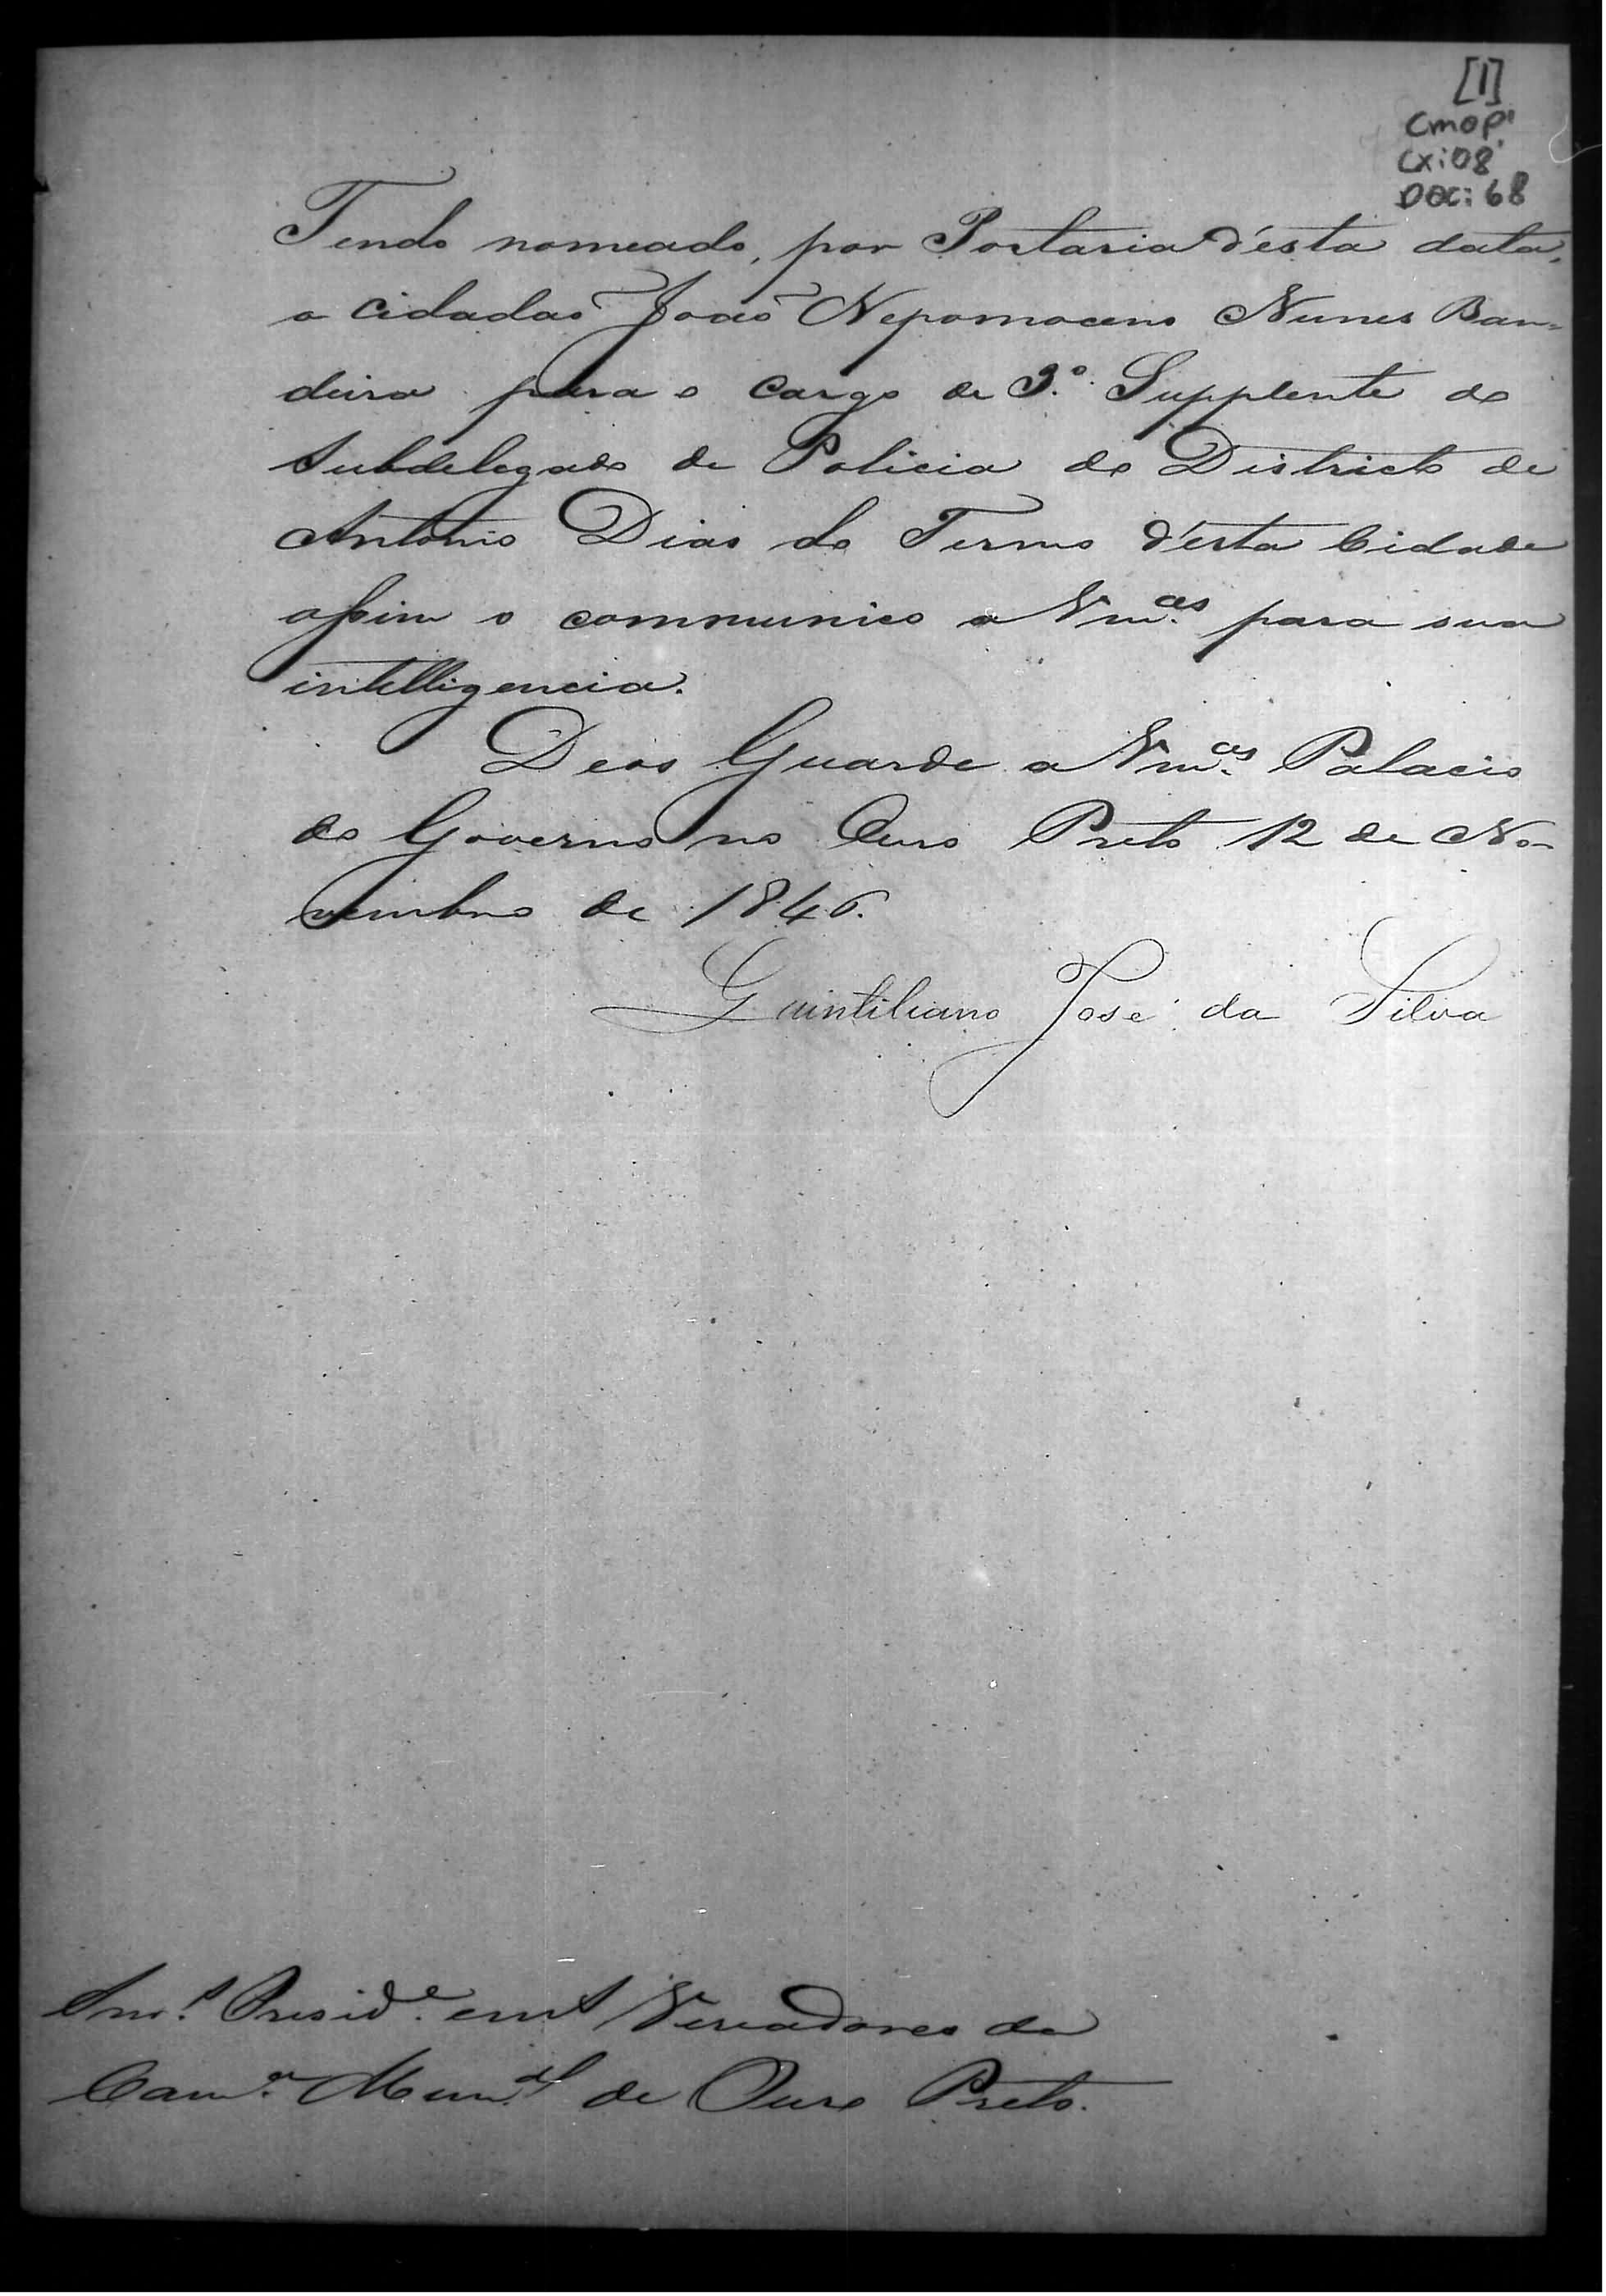 [1]
CMOP
CX:08
DOC:68
Tendo nomeado, por Portaria d'esta data,
o Cidadaõ Joaõ Nepomoceno Nunes Ban=
deira para o cargo de 3.º Supplente do
Subdelegado de Policia do Districto de
Antonio Dias do Termo d'esta Cidade
assim o communico a Vm.ces para sua
intelligencia.
Deos Guarde a Vm.ces Palacio
do Governo no Ouro Preto 12 de No-
vembro de 1846.
Quintiliano José da Silva
Snr.s Presid.e e Vereadores da
Cam.a Mun.al de Ouro Preto.